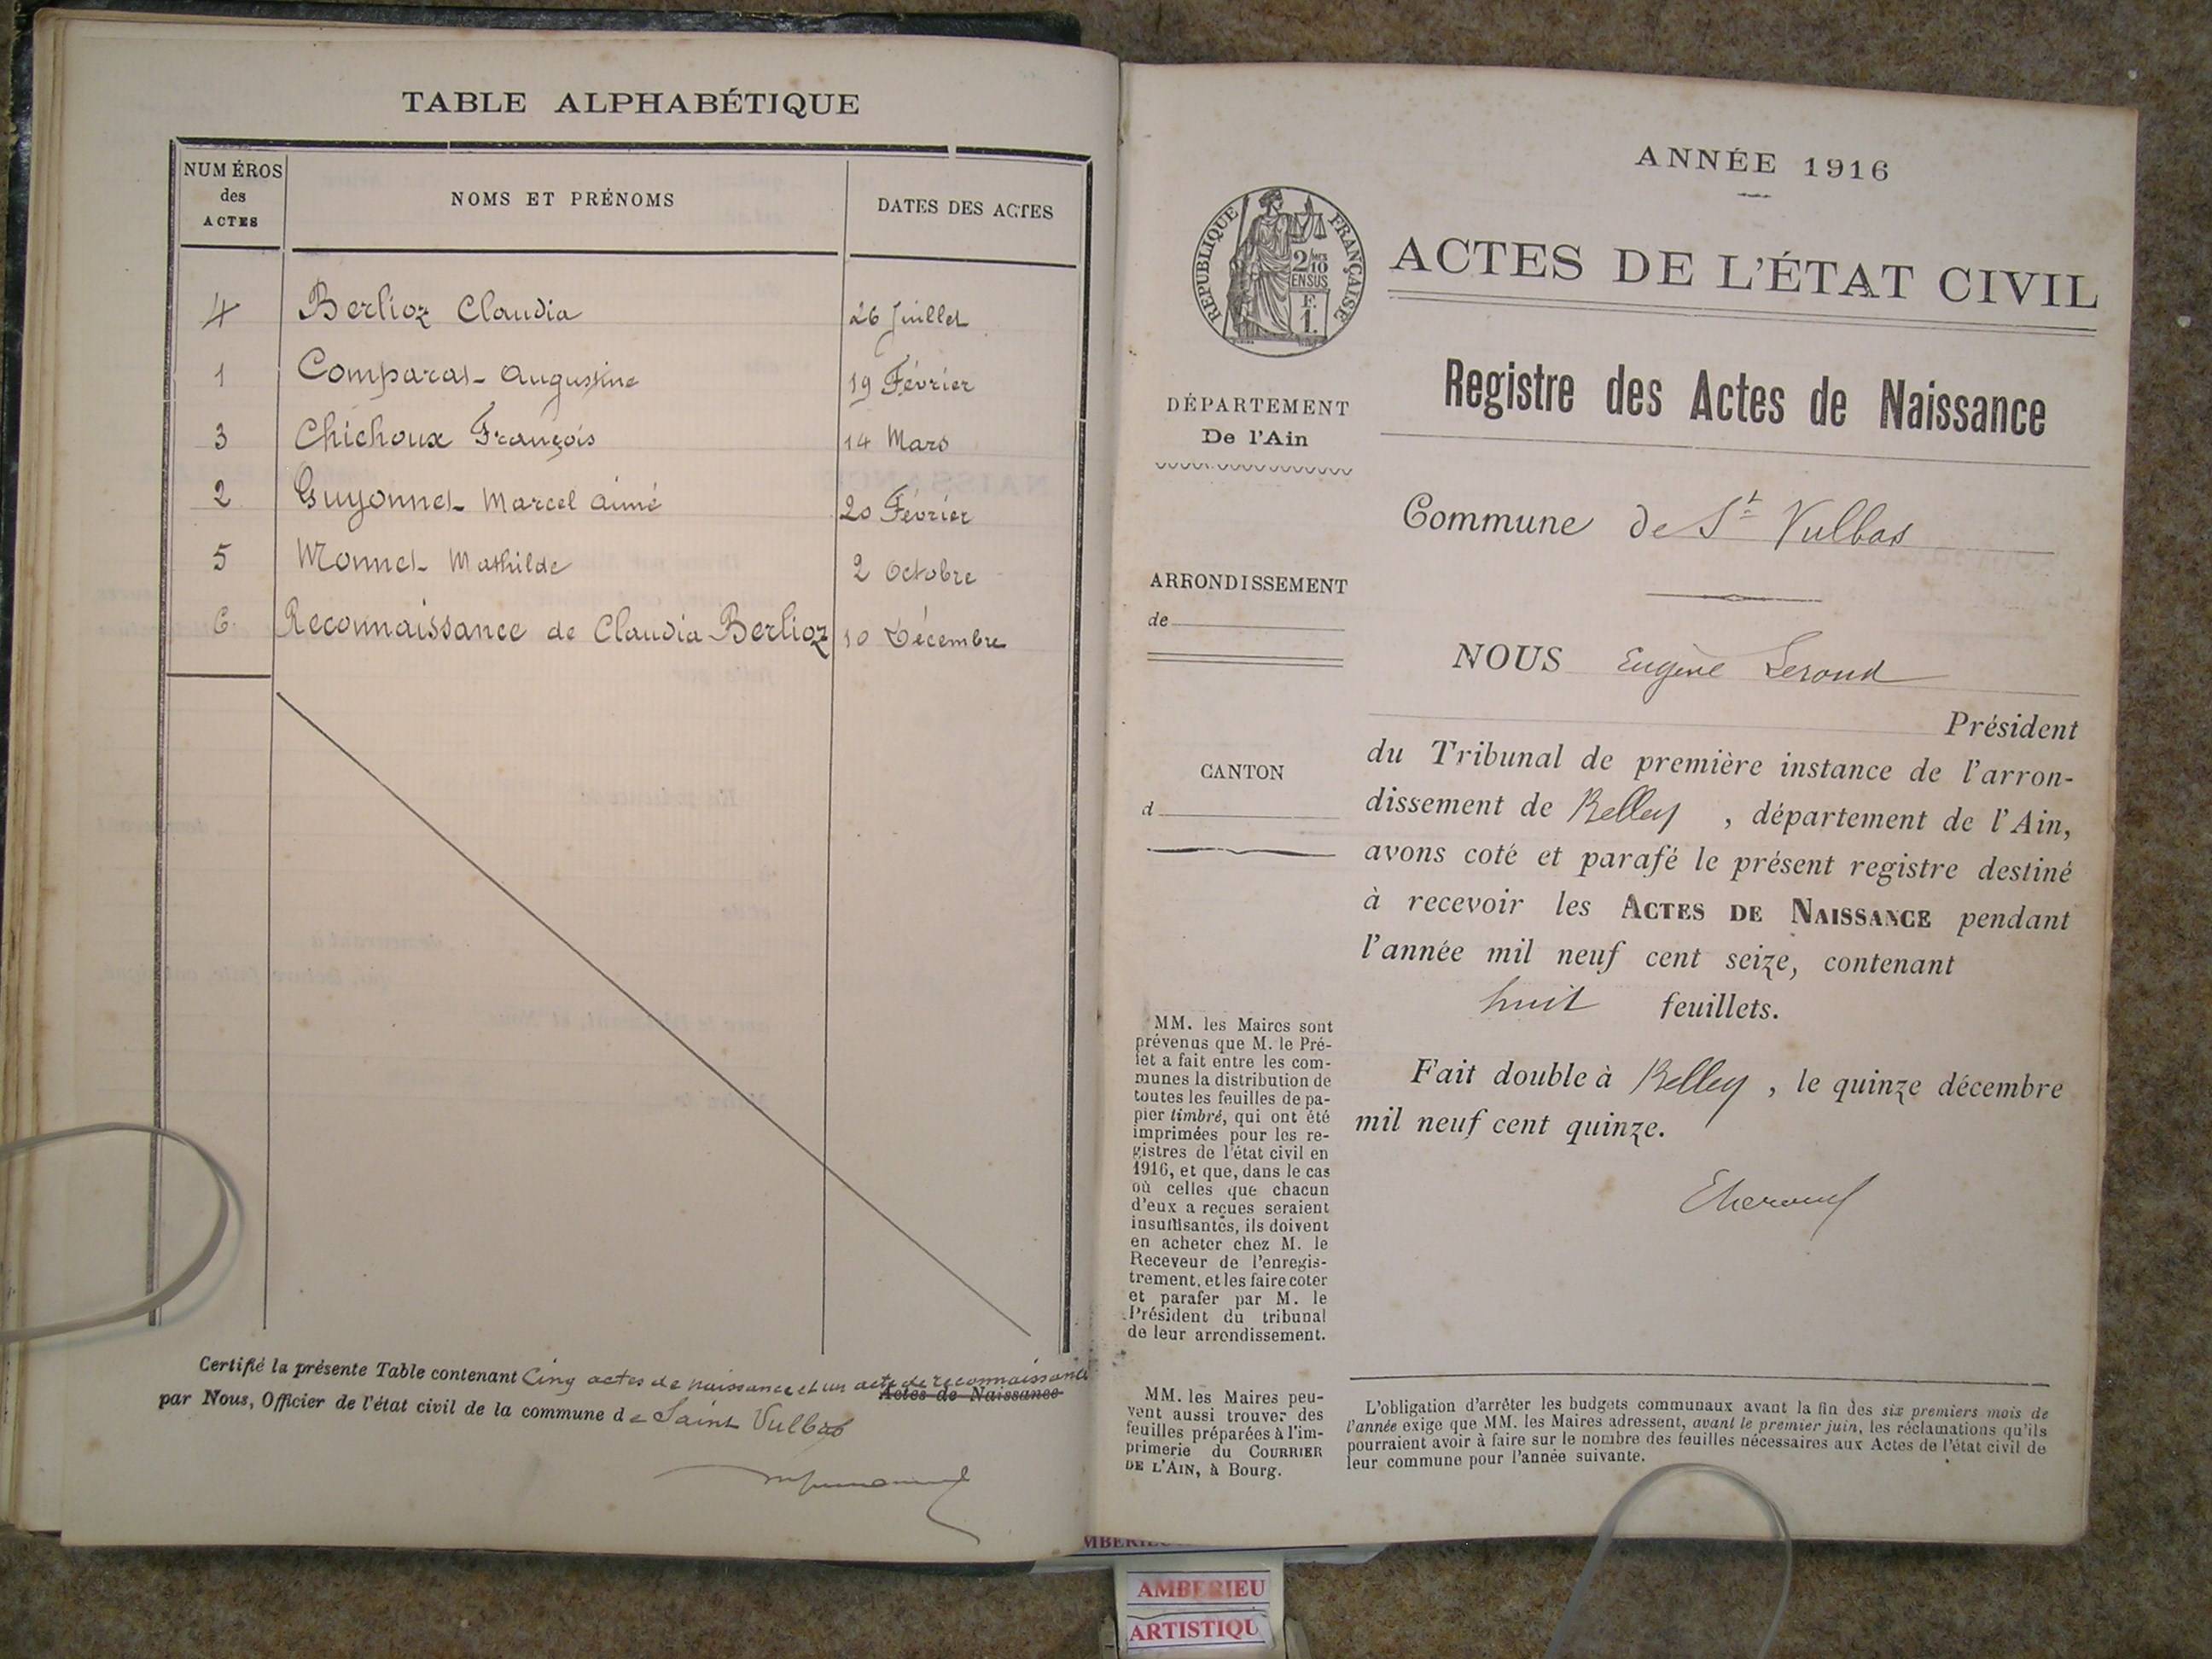 TABLE ALPHABÉTIQUE
NUMÉROS
des
ACTES
NOMS ET PRÉNOMS
DATES DES ACTES
4 Berlioz Claudia 26 Juillet
1 Comparat Augustine 19 Février
3 Chichoux François 14 Mars
2 Guyonnet Marcel Aimé 20 Février
5 Monnet Mathilde 2 Octobre
6. Reconnaissance de Claudia Berlioz 10 Décembre
Certifié la présente Table contenant Cinq actes de naissance et un acte de reconnaissance
Actes de Naissance
par Nous, Officier de l'état civil de la commune de Saint Vulbas
ANNÉE 1916
RÉPUBLIQUE FRANÇAISE
2/10
EN SUS
F.
1.
ACTES DE L'ÉTAT CIVIL
Registre des Actes de Naissance
DÉPARTEMENT
De l'Ain
Commune de St Vulbas
ARRONDISSEMENT
de
CANTON
d
NOUS Eugène
Président
du Tribunal de première instance de l'arron-
dissement de Belley, département de l'Ain,
avons coté et parafé le présent registre destiné
à recevoir les ACTES DE NAISSANCE pendant
l'année mil neuf cent seize, contenant
huit feuillets.
Fait double à Belley, le quinze décembre
mil neuf cent quinze.
MM. les Maires sont
prévenus que M. le Pré-
fet a fait entre les com-
munes la distribution de
toutes les feuilles de pa-
pier timbré, qui ont été
imprimées pour les re-
gistres de l'état civil en
1916, et que, dans le cas
où celles que chacun
d'eux a reçues seraient
insuffisantes, ils doivent
en acheter chez M. le
Receveur de l'enregis-
trement, et les faire coter
et parafer par M. le
Président du tribunal
de leur arrondissement.
MM. les Maires peu-
vent aussi trouver des
feuilles préparées à l'im-
primerie du COURRIER
DE L'AIN, à Bourg.
L'obligation d'arrêter les budgets communaux avant la fin des six premiers mois de
l'année exige que MM. les Maires adressent, avant le premier juin, les réclamations qu'ils
pourraient avoir à faire sur le nombre des feuilles nécessaires aux Actes de l'état civil de
leur commune pour l'année suivante.
AMBERIEU
ARTISTIQU